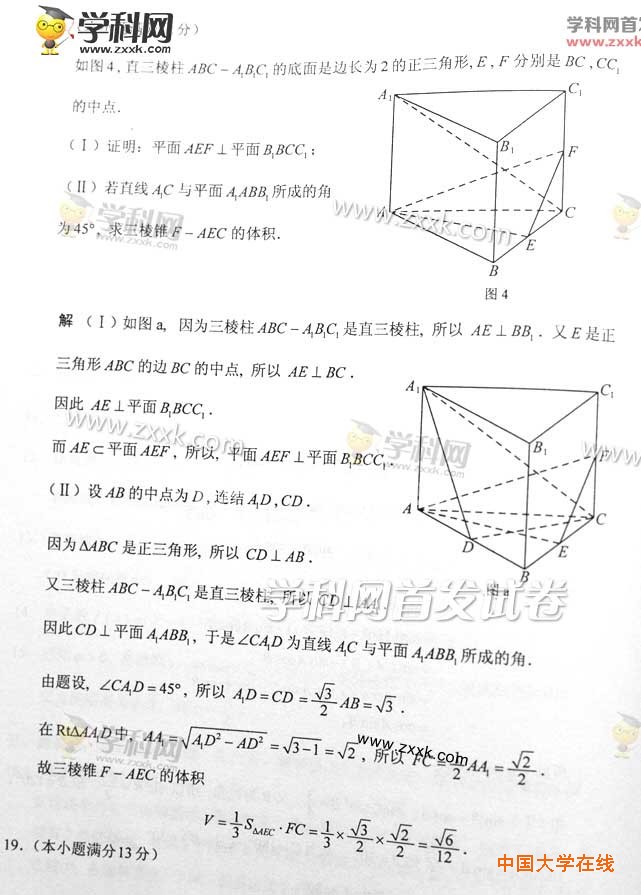 学科网
www.zxxk.com
学科网首发
www.zxxk
分)
如图4, 直三棱柱 ABC − A₁B₁C₁ 的底面是边长为 2 的正三角形, E, F 分别是 BC, CC₁
的中点.
(Ⅰ) 证明: 平面 AEF ⊥ 平面 B₁BCC₁;
(Ⅱ) 若直线 A₁C 与平面 A₁ABB₁ 所成的角
为 45°, 求三棱锥 F − AEC 的体积.
A₁
C₁
B₁
F
A
C
E
B
图 4
学科网
www.zxxk.com
www.zxxk.com
解 (Ⅰ) 如图 a, 因为三棱柱 ABC − A₁B₁C₁ 是直三棱柱, 所以 AE ⊥ BB₁. 又 E 是正
三角形 ABC 的边 BC 的中点, 所以 AE ⊥ BC.
因此 AE ⊥ 平面 B₁BCC₁.
而 AE ⊂ 平面 AEF, 所以, 平面 AEF ⊥ 平面 B₁BCC₁.
(Ⅱ) 设 AB 的中点为 D, 连结 A₁D, CD.
www.zxxk.com
学科网
A₁
C₁
B₁
A
C
D
E
B
图 a
因为 ΔABC 是正三角形, 所以 CD ⊥ AB.
又三棱柱 ABC − A₁B₁C₁ 是直三棱柱, 所以 CD ⊥ AA₁.
学科网首发试卷
因此 CD ⊥ 平面 A₁ABB₁, 于是 ∠CA₁D 为直线 A₁C 与平面 A₁ABB₁ 所成的角.
由题设, ∠CA₁D = 45°, 所以 A₁D = CD = √3/2 AB = √3.
在 RtΔAA₁D 中, AA₁ = √(A₁D² − AD²) = √(3−1) = √2, 所以 FC = 1/2 AA₁ = √2/2.
www.zxxk.com
故三棱锥 F − AEC 的体积
V = 1/3 S_ΔAEC · FC = 1/3 × √3/2 × √2/2 = √6/12.
19. (本小题满分13 分)
中国大学在线